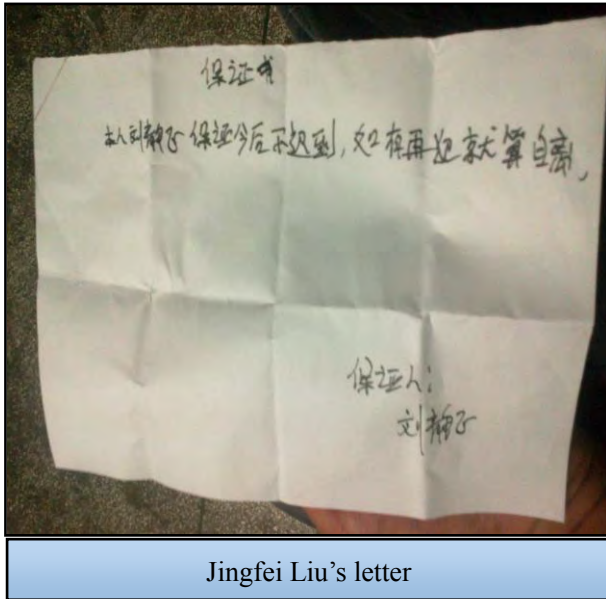 保证书
本人刘静飞保证今后不迟到,如有再迟就算自离,
保证人:
刘静飞
Jingfei Liu’s letter